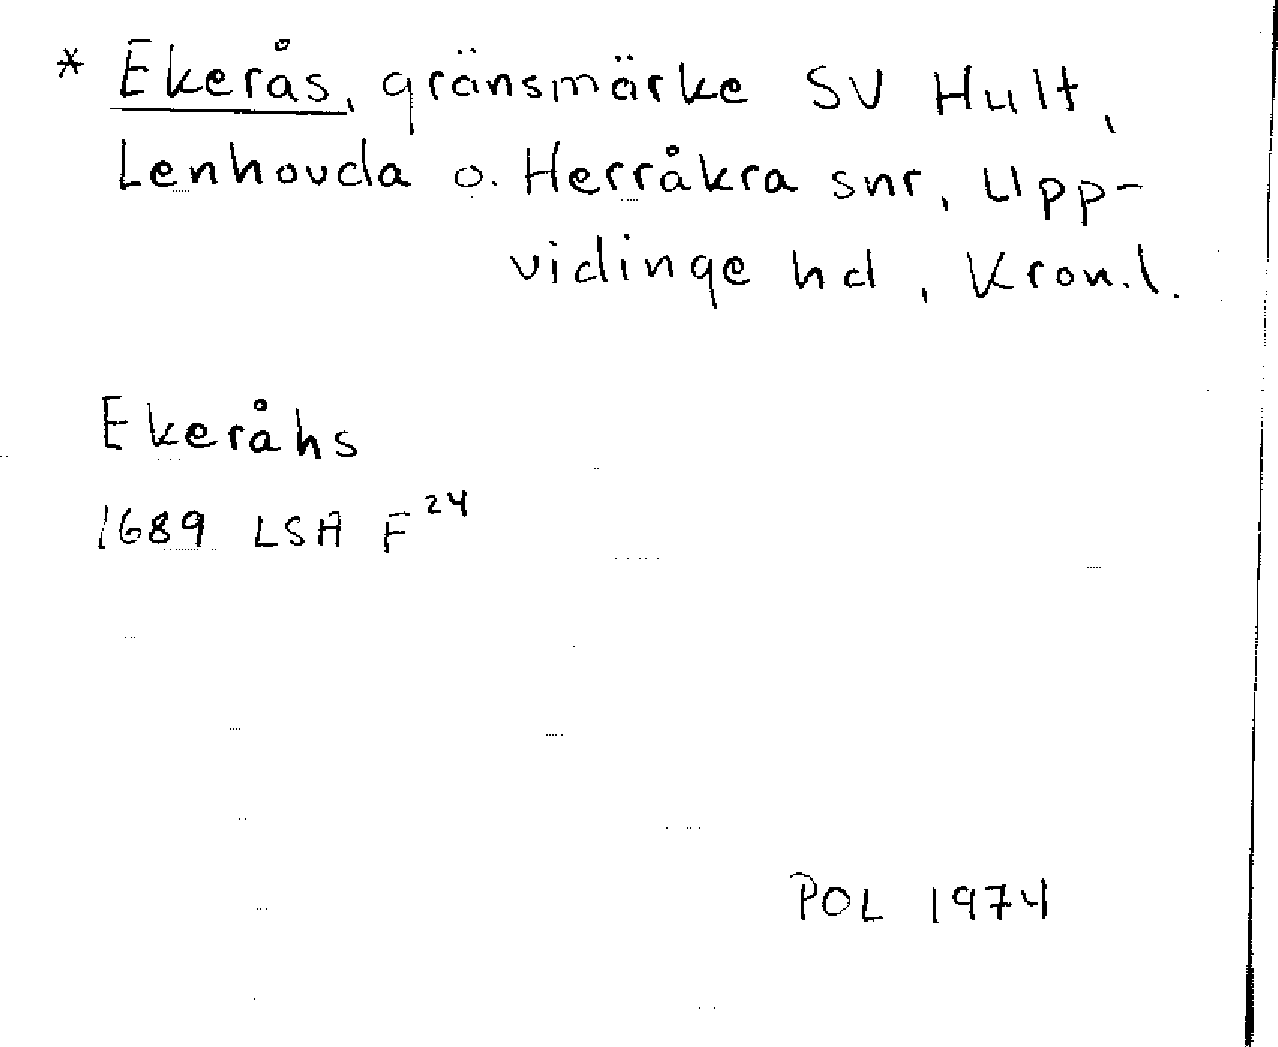 * Ekerås, gränsmärke SV Hult,
Lenhovda o. Herråkra snr, Upp-
vidinge hd, Kron.l.
Ekeråhs
1689 LSA F 24
POL 1974